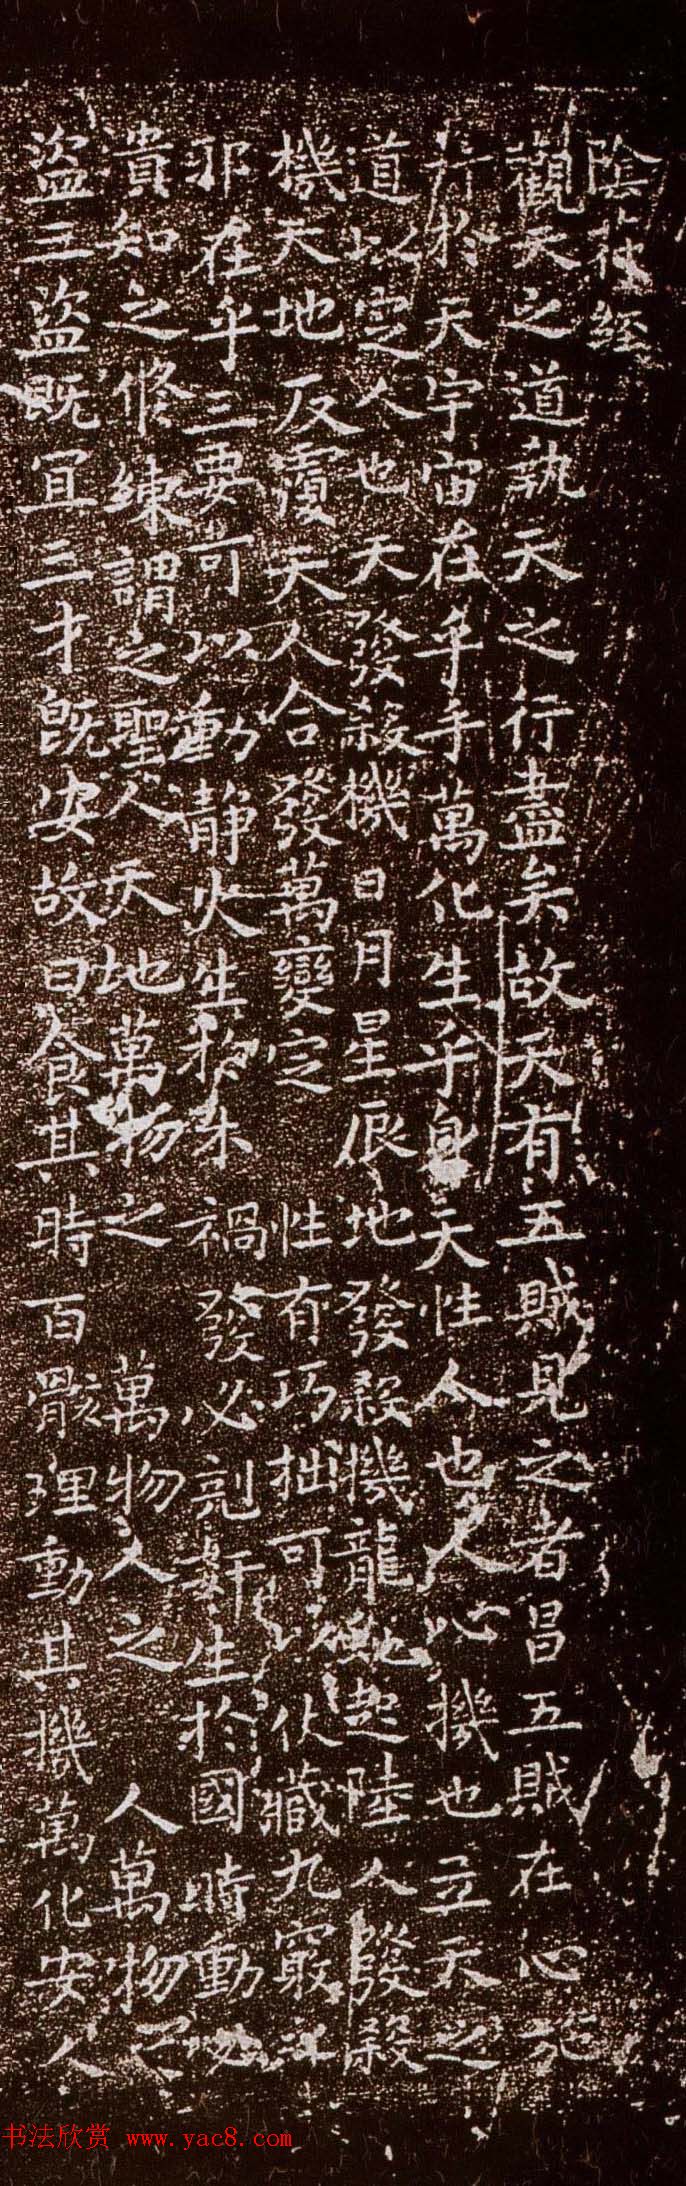 陰符經
觀天之道執天之行盡矣故天有五賊見之者昌五賊在心施
行於天宇宙在乎手萬化生乎身天性人也人心機也立天之
道以定人也天發殺機日月星辰地發殺機龍虵起陸人發殺
機天地反覆天人合發萬變定 性有巧拙可以伏藏九竅之
邪在乎三要可以動靜火生於木禍發必剋姧生於國時動必
貴知之修練謂之聖人天地萬物之 萬物人之 人萬物之
盜三盜既宜三才既安故曰食其時百骸理動其機萬化安人
书法欣赏 www.yac8.com